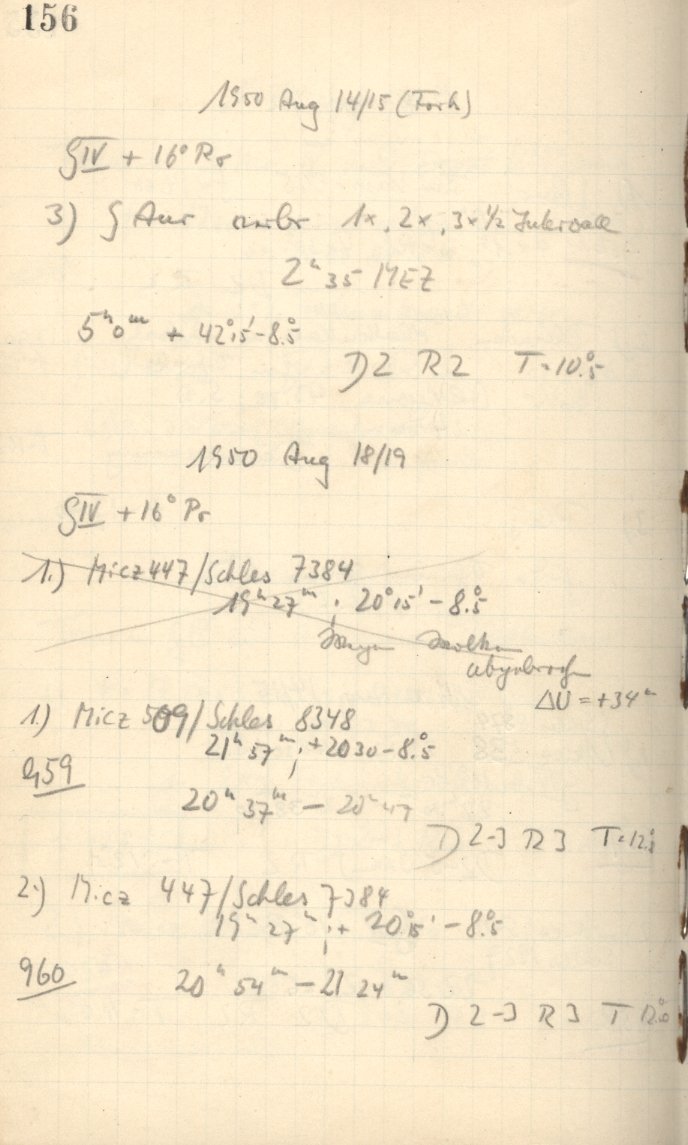 156
1950 Aug 14/15 (Forts)
IV + 16° Pr
3) ζ Aur 1x, 2x, 3x ½ Intervall
2ʰ 35 MEZ
5ʰ0ᵐ + 42°15' - 8°.5
D 2 R 2 T = 10°.5
1950 Aug 18/19
IV + 16° Pr
1.) Micz 447/Schles 7384
19ʰ 27ᵐ ; 20°15' - 8°.5
Wolken
abgebroch
ΔU = +34ᵐ
1) Micz 509/Schles 8348
21ʰ 57ᵐ ; +20 30 - 8°.5
959
20ʰ 37ᵐ — 20ʰ 47
D 2-3 R 3
2.) Micz 447/Schles 7384
19ʰ 27ʰ ; + 20°15' - 8°.5
960
20ʰ 54ᵐ — 21 24ᵐ
D 2-3 R 3 T